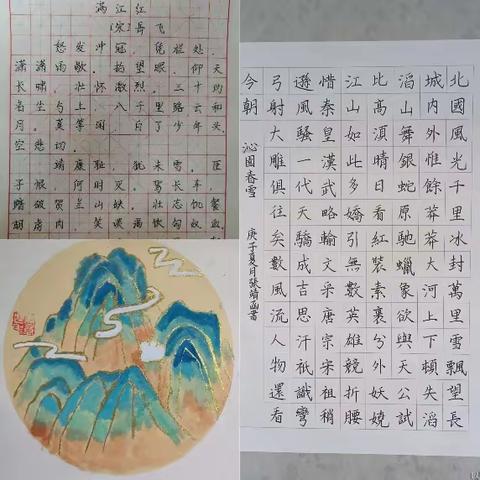 满江红
[宋]岳飞
怒发冲冠,凭栏处、
潇潇雨歇。抬望眼,仰天
长啸,壮怀激烈。三十功
名尘与土,八千里路云和
月。莫等闲、白了少年头,
空悲切。
靖康耻,犹未雪。臣
子恨,何时灭。驾长车,
踏破贺兰山缺。壮志饥餐
胡虏肉,笑谈渴饮匈奴血。
北國風光千里冰封萬里雪飄望長
城內外惟餘莽莽大河上下頓失滔
滔山舞銀蛇原馳蠟象欲與天公試
比高須晴日看紅裝素裹分外妖嬈
江山如此多嬌引無數英雄競折腰
惜秦皇漢武略輸文采唐宗宋祖稍
遜風騷一代天驕成吉思汗祇識彎
弓射大雕俱往矣數風流人物還看
今朝
沁園春雪 庚子夏月張靖函書